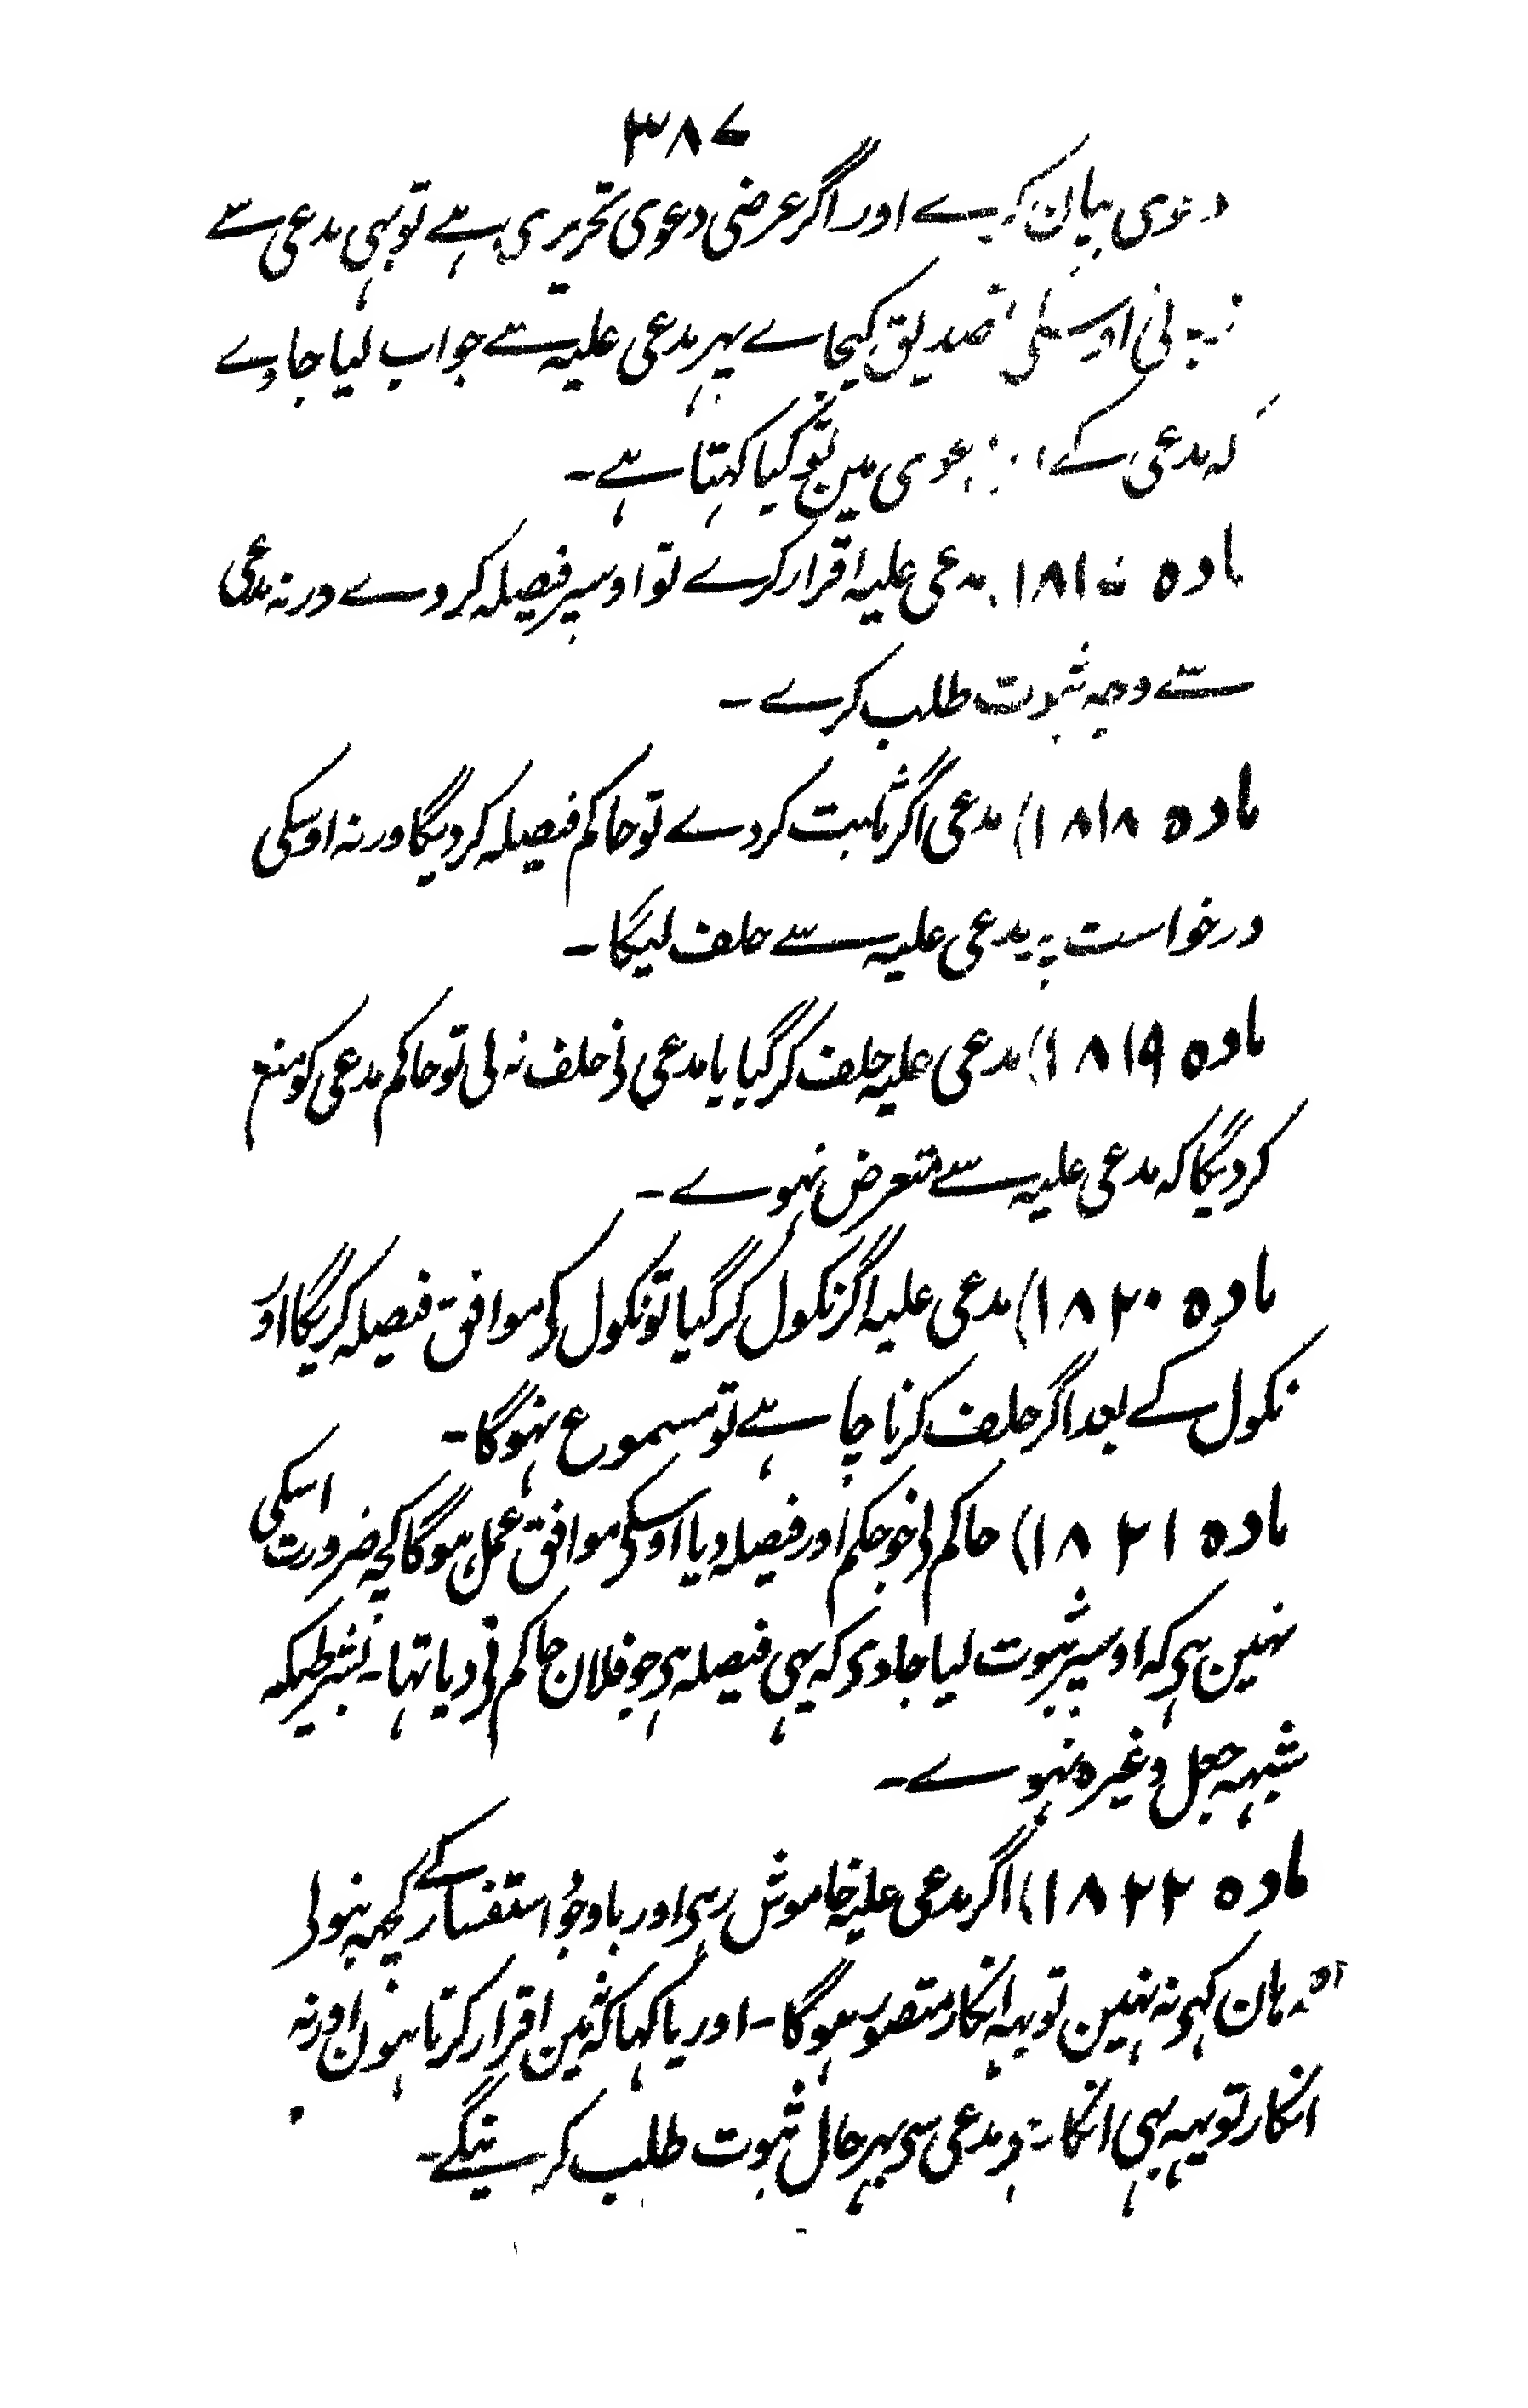 ۳۸۷
دعوی بیان کرے اور اگر عرضی دعوی تحریری ہے تو بہی مدعی سے
زبانی اوسکی تصدیق کیجاے پہر مدعی علیہ سے جواب لیا جاوے
کہ مدعی کے دعوی مین تو کیا کہتا ہے۔
مادہ ۱۸۱۷) مدعی علیہ اقرار کرے تو اوسپر فیصلہ کردے ورنہ مدعی
سے وجہ ثبوت طلب کرے۔
مادہ ۱۸۱۸) مدعی اگر ثابت کردے تو حاکم فیصلہ کردیگا ورنہ اوسکی
درخواست پہ مدعی علیہ سے حلف لیگا۔
مادہ ۱۸۱۹) مدعی علیہ حلف کر گیا یا مدعی نی حلف نہ لی تو حاکم مدعی کو منع
کردیگا کہ مدعی علیہ سے متعرض نہوے۔
مادہ ۱۸۲۰) مدعی علیہ اگر نکول کر گیا تو نکول کی موافق فیصلہ کریگا اور
نکول کے بعد اگر حلف کرنا چاہے تو مسموع نہوگا۔
مادہ ۱۸۲۱) حاکم نی جو حکم اور فیصلہ دیا اوسکی موافق عمل ہوگا کچہ ضرورت اسکی
نہین ہی کہ اوسپر ثبوت لیا جاوی کہ یہی فیصلہ ہی جو فلان حاکم نی دیا تہا۔ بشرطیکہ
شبہہ جعل وغیرہ نہوے۔
مادہ ۱۸۲۲) اگر مدعی علیہ خاموش رہی اور باوجود استفسار کے کچہہ نبولی
نہ ہان کہی نہ نہین تو یہہ انکار متصور ہوگا۔ اور یا کہا کہ مین اقرار کرتا ہون اور نہ
انکار تو یہہ بہی انکار ہی مدعی سی بہر حال ثبوت طلب کرینگے۔